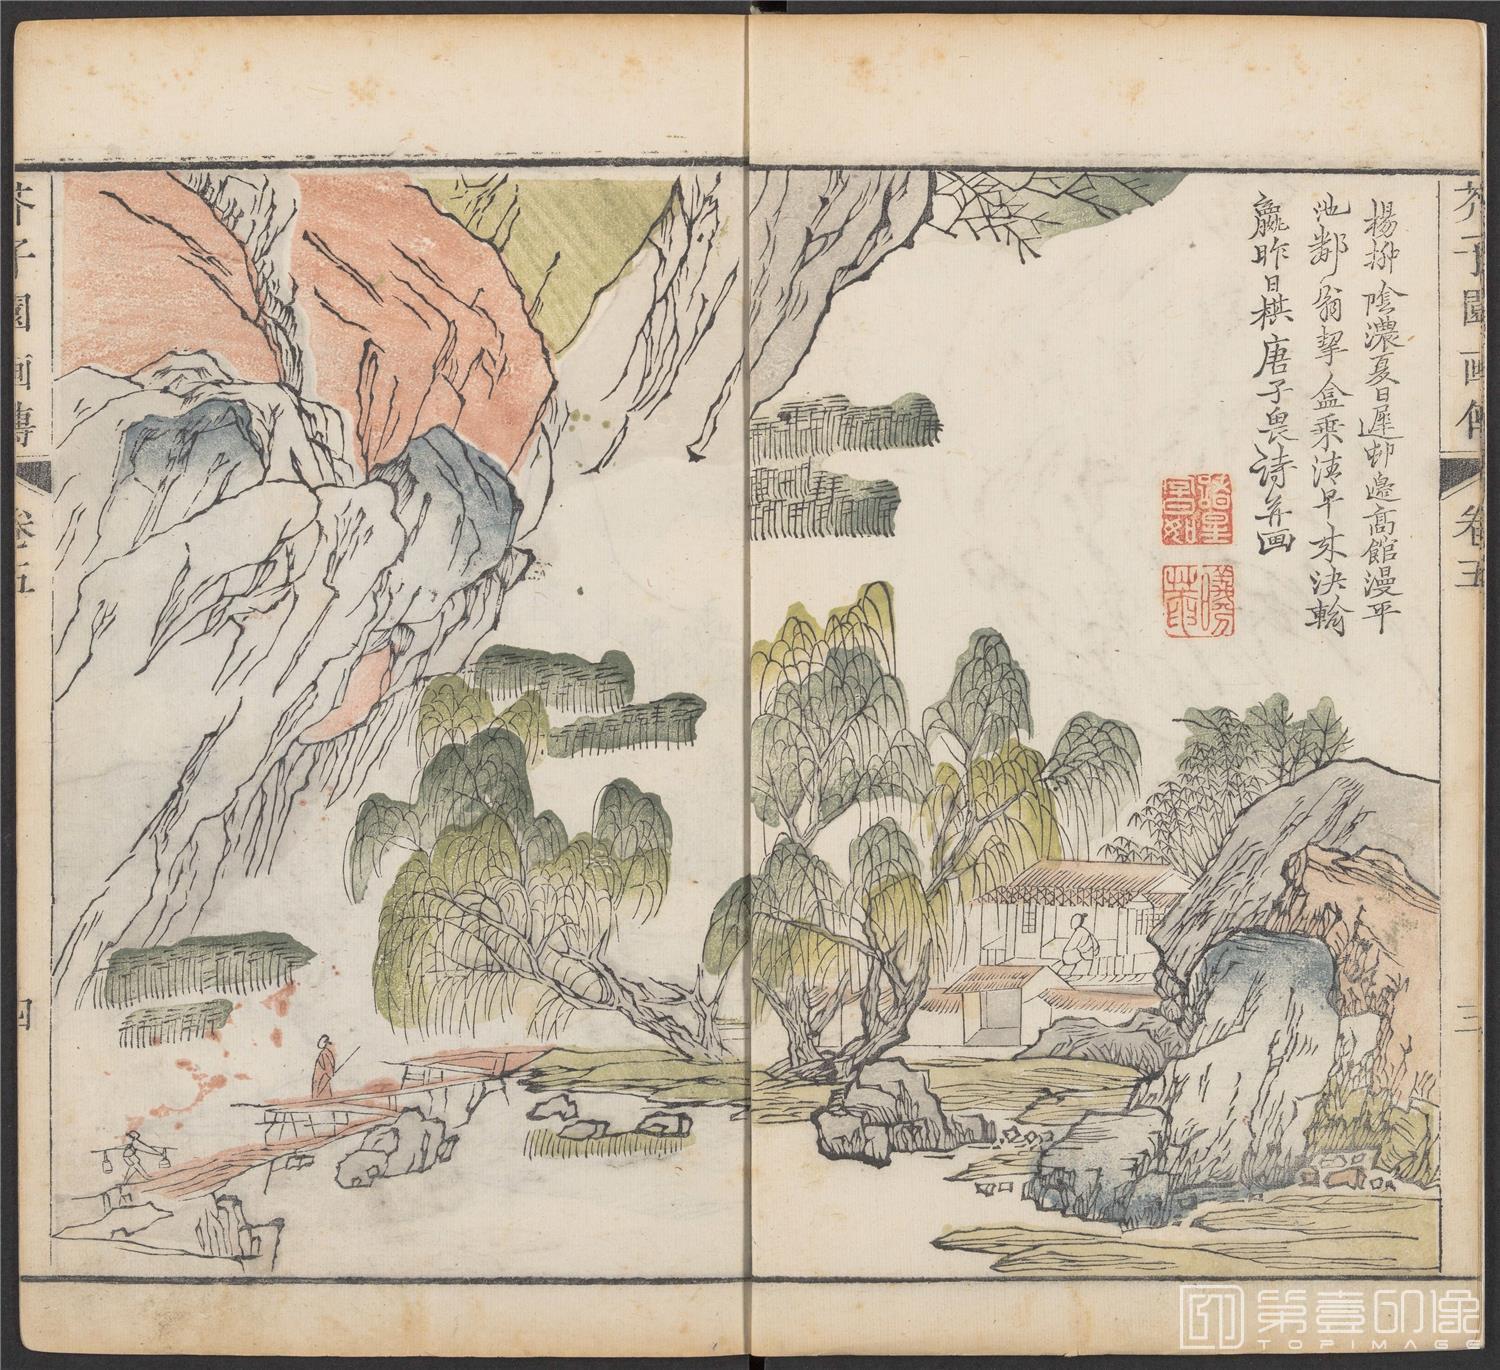 楊柳陰濃夏日遲邨邊高館漫平
池鄰翁挈盒乘清早來決輸
贏昨日棋唐子畏詩并画
芥子園画傳
卷五
三
芥子園画傳
卷五
四
第壹印像
TOPIMAGE